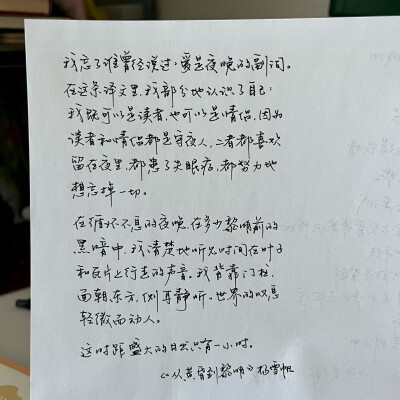 我忘了谁曾经说过，爱是夜晚的副词。
在这条译文里，我部分地认识了自己：
我既可以是读者，也可以是情侣，因为
读者和情侣都是守夜人，二者都喜欢
留在夜里，都患了失眠症，都努力地
想忘掉一切。
在川流不息的夜晚，在多少黎明前的
黑暗中，我清楚地听见时间在叶子
和瓦片上行走的声音。我背靠门柱，
面朝东方，侧耳静听。世界的叹息
轻微而动人。
这时距盛大的日出只有一小时。
《从黄昏到黎明》杨雪帆